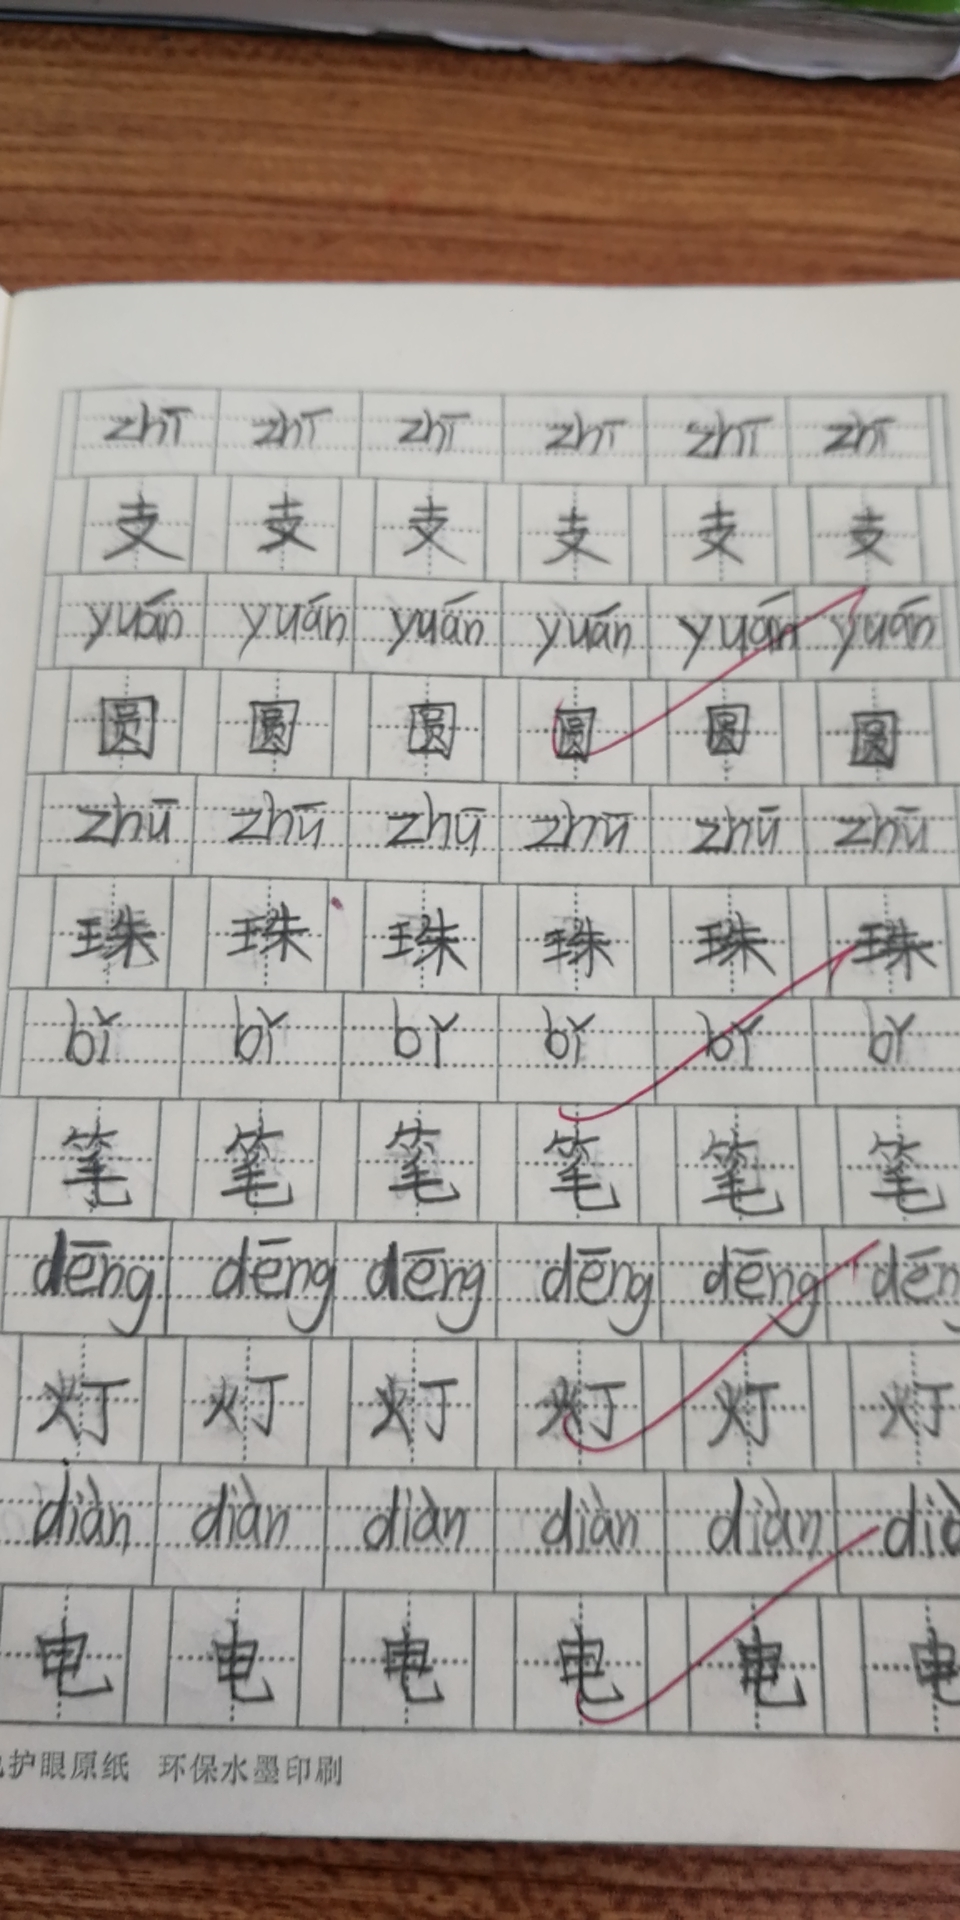 zhī zhī zhī zhī zhī zhī
支 支 支 支 支 支
yuán yuán yuán yuán yuán yuán
圆 圆 圆 圆 圆 圆
zhū zhū zhū zhū zhū zhū
珠 珠 珠 珠 珠 珠
bǐ bǐ bǐ bǐ bǐ bǐ
笔 笔 笔 笔 笔 笔
dēng dēng dēng dēng dēng dēn
灯 灯 灯 灯 灯 灯
diàn diàn diàn diàn diàn dià
电 电 电 电 电 电
护眼原纸 环保水墨印刷